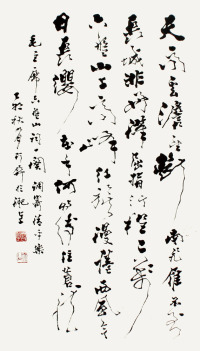 天高雲淡望斷南飛雁不到
長城非好漢屈指行程二萬
六盤山上高峰紅旗漫捲西風今
日長纓在手何時縛住蒼龍
毛主席六盤山詞一闋調寄清平樂